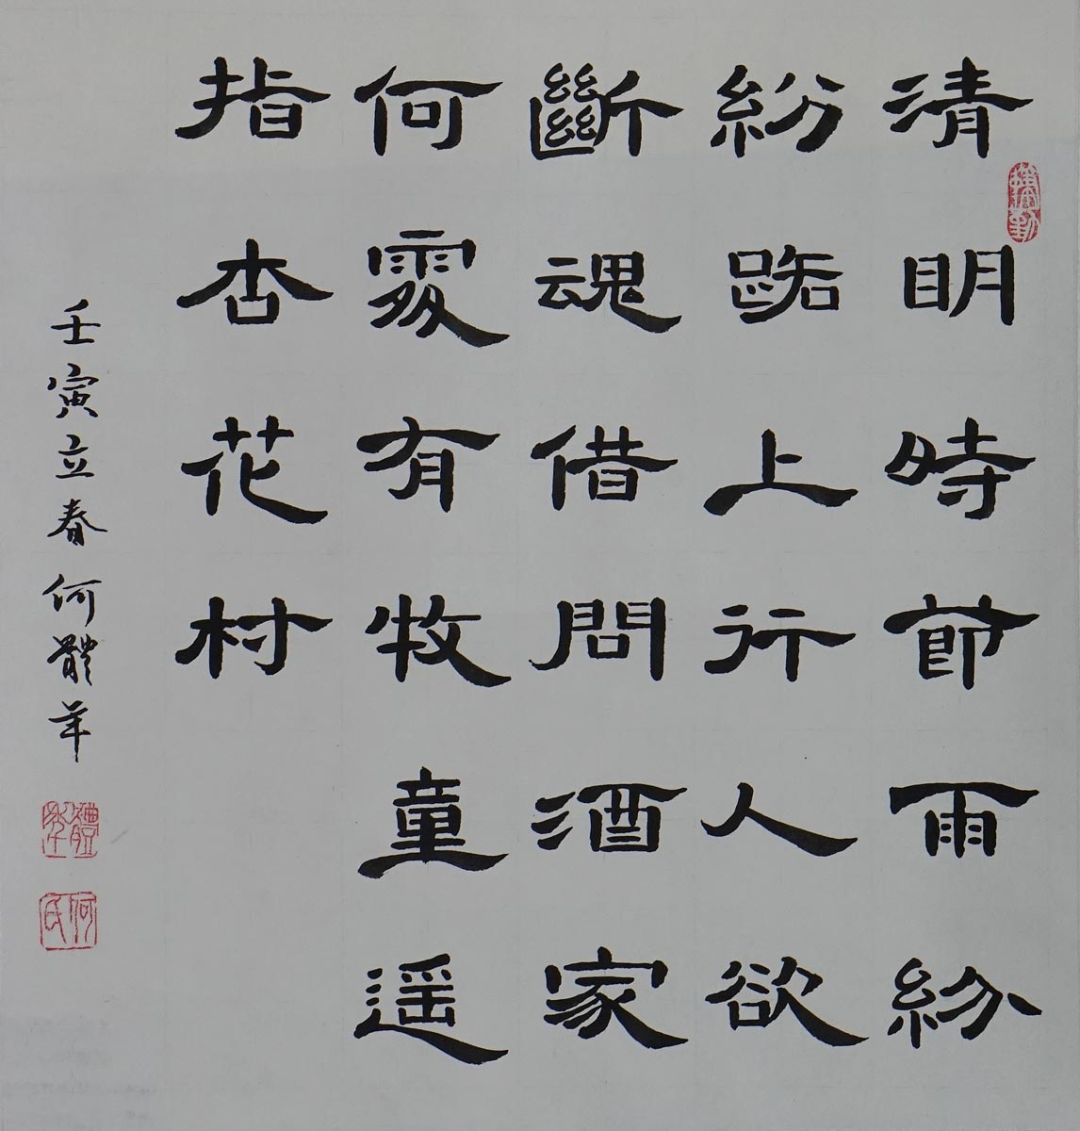 清明時節雨紛
紛路上行人欲
斷魂借問酒家
何處有牧童遥
指杏花村
壬寅立春何體年
體年
何氏